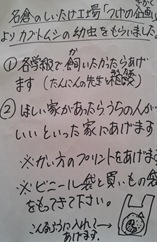 名倉のしいたけ工場「つげの企画」
よりカブトムシの幼虫をもらいました。
①各学級で飼いたかったらあげ
ます（たんにんの先生に相談）
②ほしい家があったらうちの人が
いいといった家にあげます
※かい方のプリントをあげます
※ビニール袋と買いもの袋
をもってきて下さい。
こんなふうに入れて→
あげます。